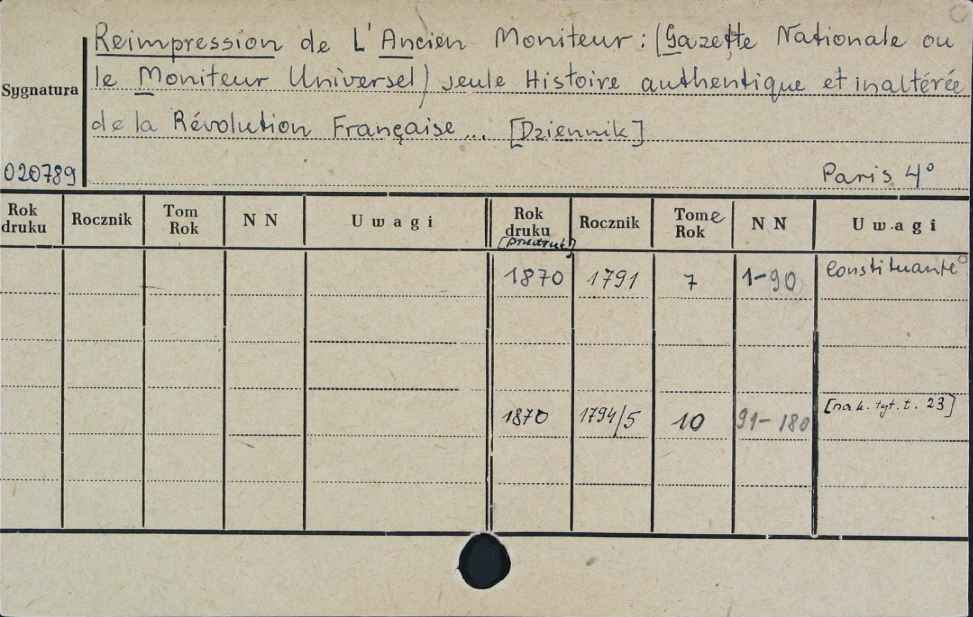 Reimpression de L'Ancien Moniteur : (Gazette Nationale ou
le Moniteur Universel) seule Histoire authentique et inaltérée
Sygnatura
de la Révolution Française... [Dziennik]
020789
Paris 4°
Rok druku Rocznik Tom Rok N N Uwagi Rok druku [przedruk] Rocznik Tome Rok N N Uwagi
1870 1791 7 1-90 Constituante
1870 1794/5 10 91-180 [na k. tyt. t. 23]